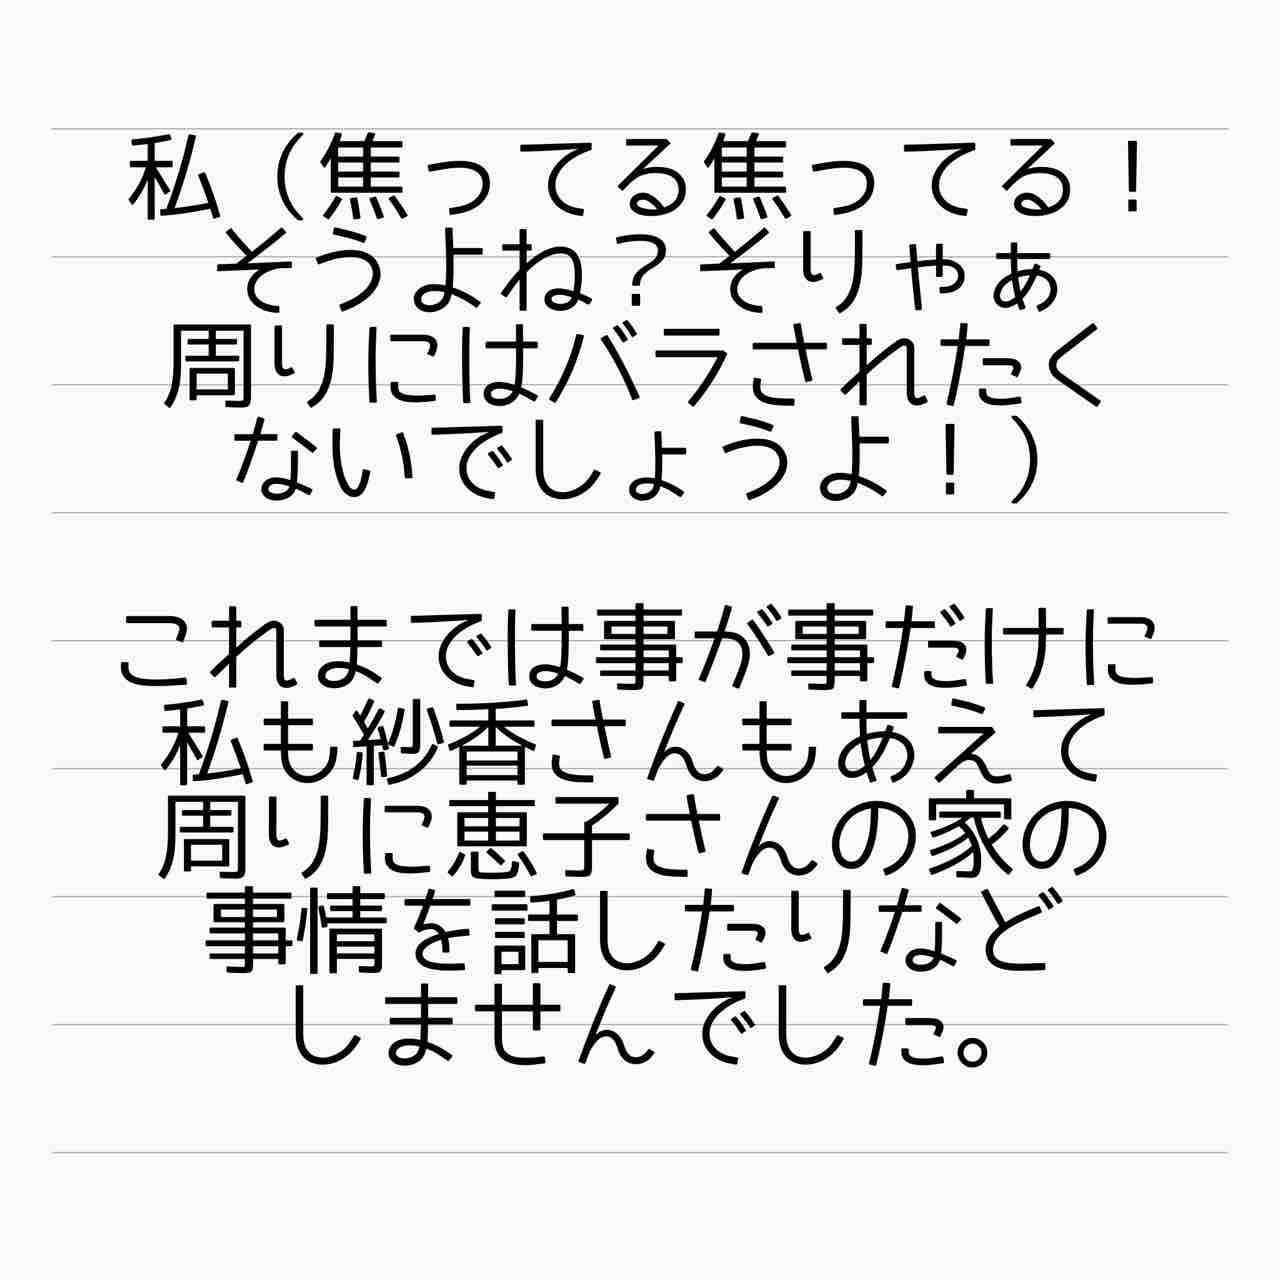 私（焦ってる焦ってる！
そうよね？そりゃぁ
周りにはバラされたく
ないでしょうよ！）
これまでは事が事だけに
私も紗香さんもあえて
周りに恵子さんの家の
事情を話したりなど
しませんでした。